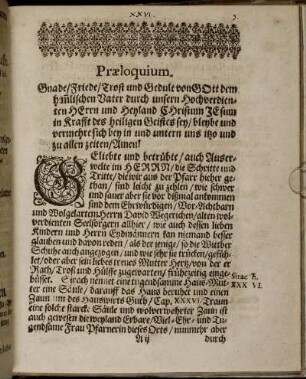 XXVI.
3.
Præloquium.
Gnade/Friede/Trost und Gedult von GOtt dem
hym̃lischen Vater durch unsern Hochverdien-
ten HErrn und Heyland CHristum JEsum
in Krafft des heiligen Geistes sey/bleybe und
vermehre sich bey in und untern uns itzo und
zu allen zeiten/Amen!
GEliebte und betrübte/auch Auser-
welte im HERRN/die Schritte und
Tritte/die wir aus der Pfarr bisher ge-
than/sind leicht zu zehlen/wie schwer
und sauer aber sie vor dißmal ankommen
sind dem Ehrwürdigen/Vor-Achtbarn
und Wolgelarten Herrn David Wegerichen/alten wol-
verdienten Seelsorgern allhier/wie auch dessen lieben
Kindern und Herrn Eydönmern kan niemand besser
glauben und davon reden/als der jenige/so die Witther
Schuhe auch angezogen/und wie sehr sie drücken/gefüh-
let/oder aber sein liebes treues Mütter Hertz/von der er
Rath/Trost und Hülffe zugewarten/frühzeitig einge-
büsset. Sirach nennet eine tugendsamme Haus-Müt-
ter eine Säule/darauff das Haus beruhet und einen
Zaun um des Hauswirts Guth/Cap. XXXVI. Traun
eine solche starcke Säule und wolverwehrter Zaun ist
auch gewesen die weyland Erbare/Viel-Ehr- und Tu-
gendsame Frau Pfarnerin dieses Orts/nunmehr aber
Sirac K.
XXXVI.
A ij
durch